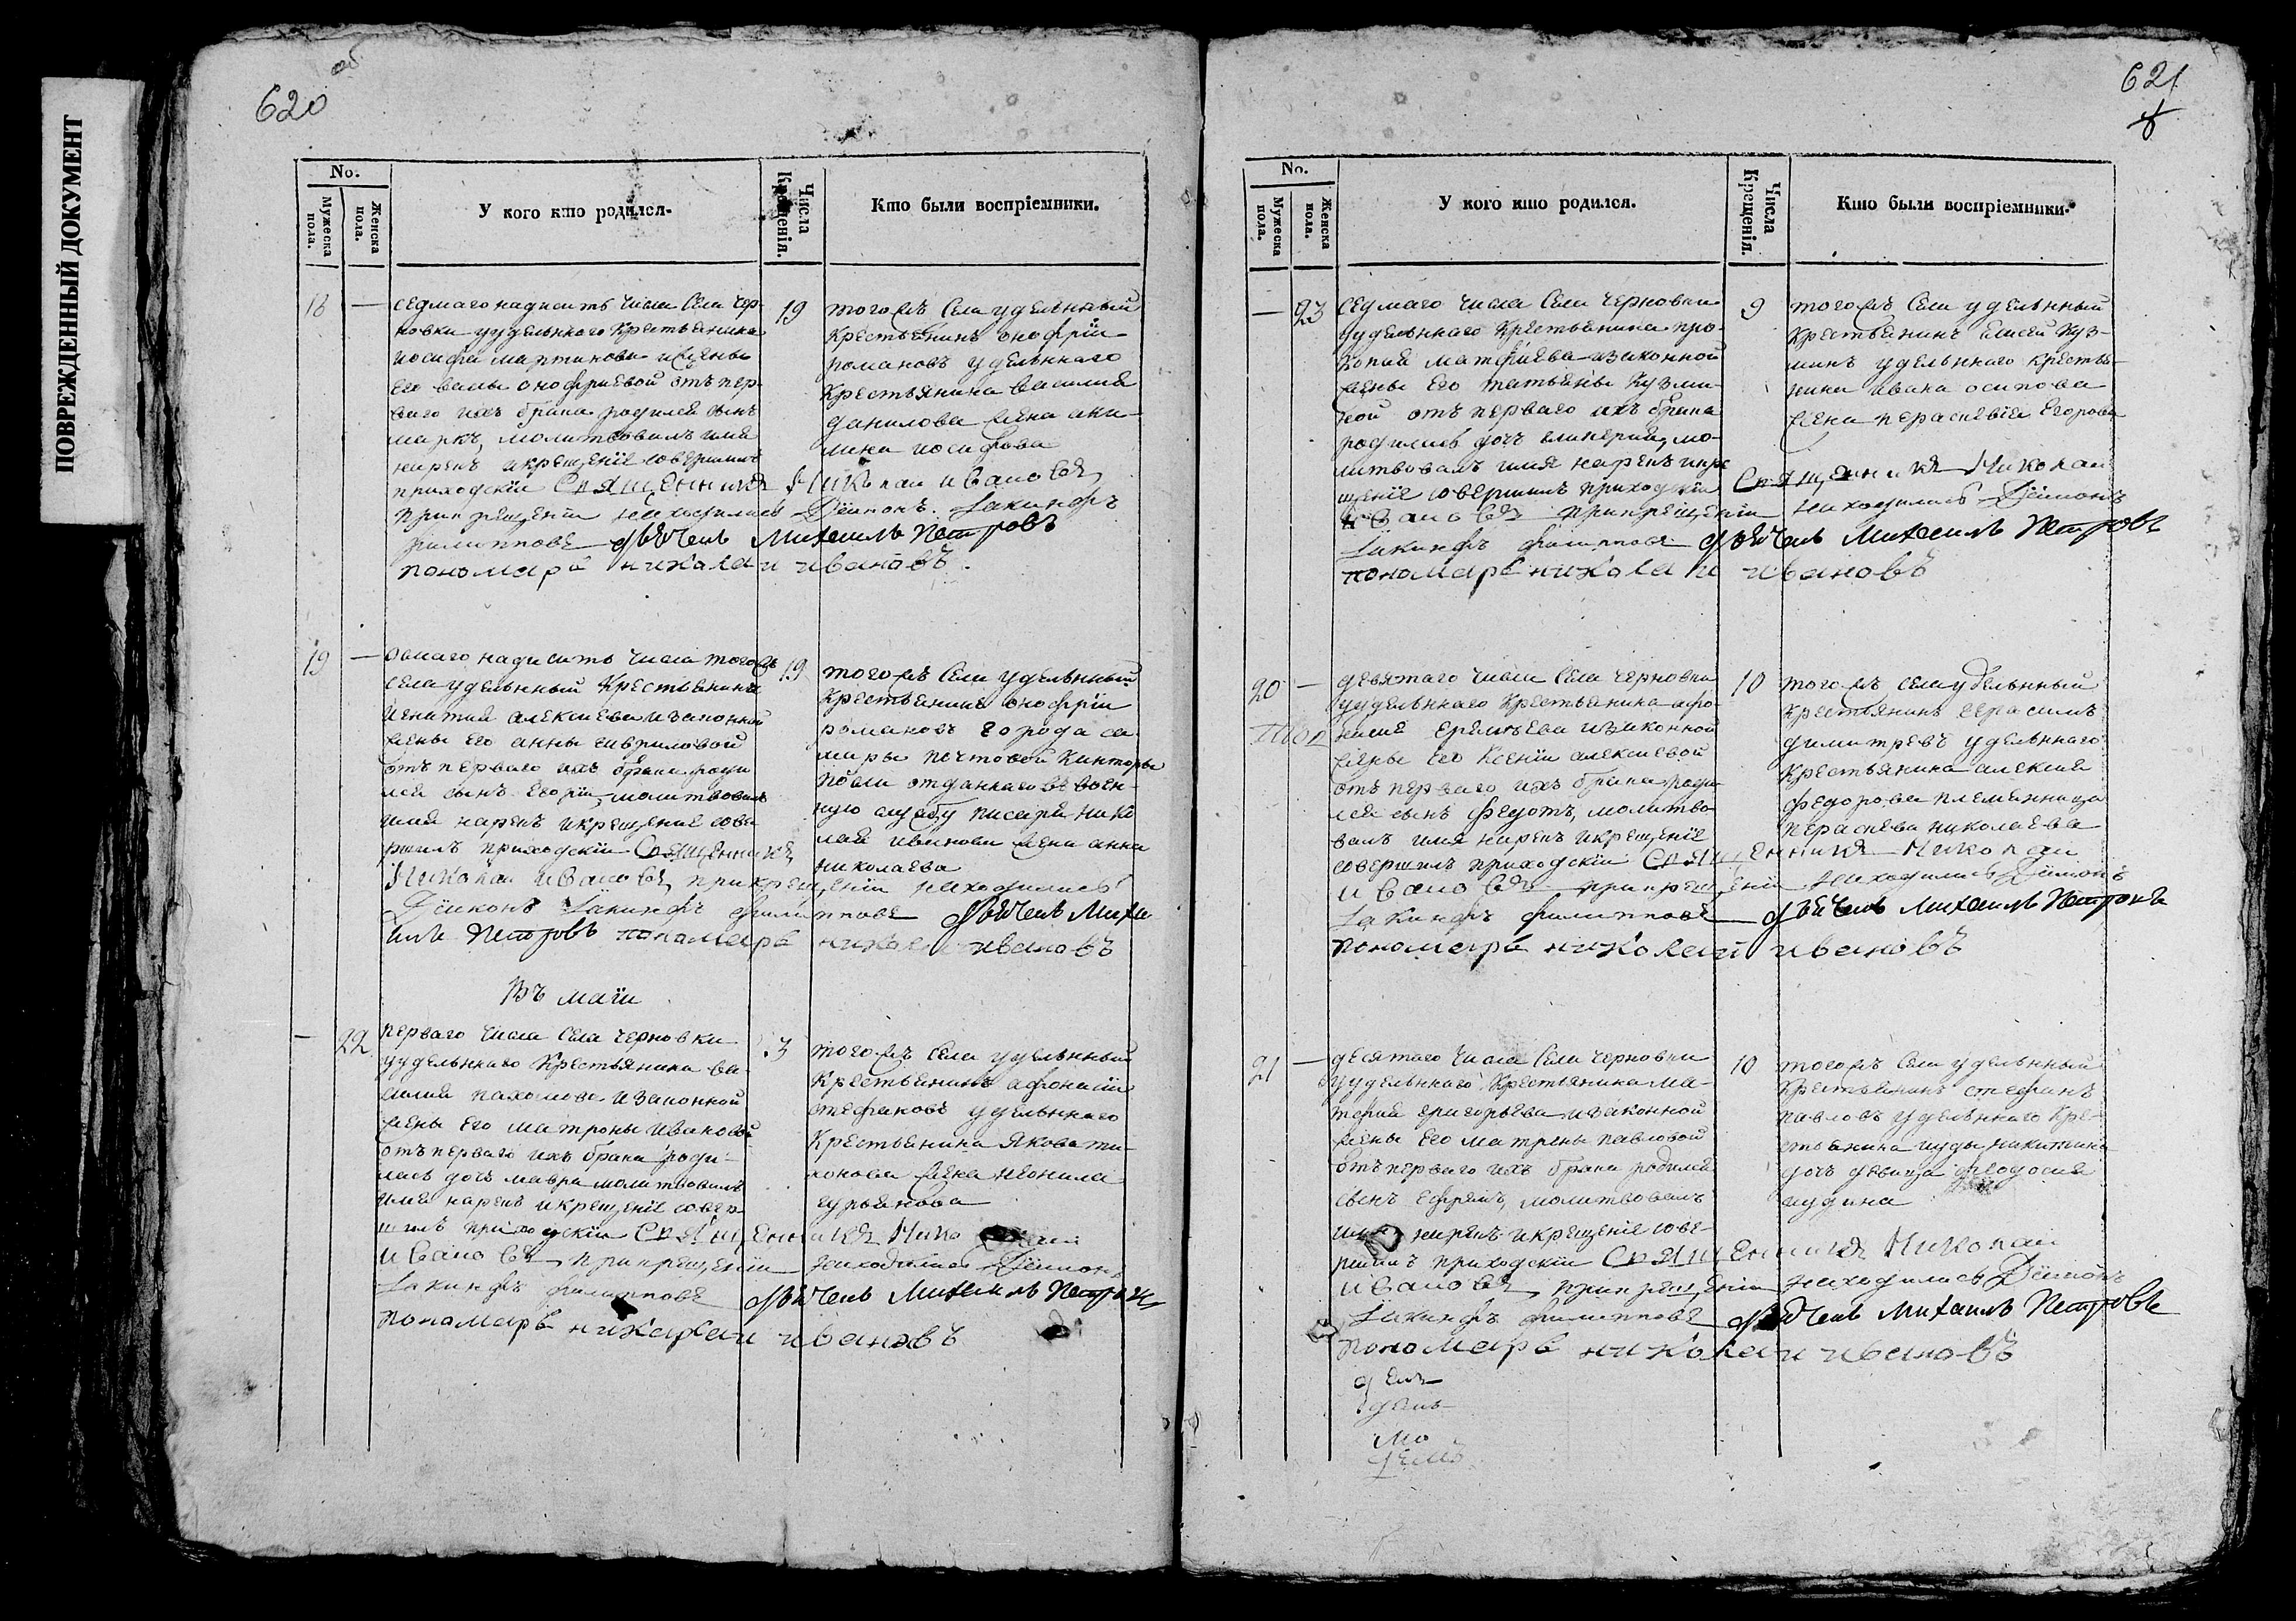 ПОВРЕЖДЕННЫЙ ДОКУМЕНТ
об
620
No.
Мужеска пола.
Женска пола.
У кого кто родился.
Числа Крещенія.
Кто были воспріемники.
18 —
седмаго надесить числа села чер-
новки уудельнаго крестьянина
иосифа мартинова ижены
его вассы онофриевой отъ пер-
ваго ихъ брака родился сынъ
маркъ, молитвовалъ имя
нарекъ икрещеніе совершилъ
приходскіи Священникъ Николаи Ивановъ,
прикрещеніи находились Діаконъ Iакинфъ
филипповъ дьячекъ Михаилъ Петровъ
пономарь николаи ивановъ
19
тогожъ села удельный
крестьянинъ онофріи
романовъ удельнаго
крестьянина василия
данилова жена аки-
лина иосифова
19 —
осмаго надесить числа тогожъ
села удельный крестьянинъ
игнатия алексиева изаконной
жены его анны гавриловой
отъ перваго ихъ брака роди
лся сынъ егоріи, молитвовалъ
имя нарекъ икрещение сове
ршилъ приходскіи Священникъ
Николаи Ивановъ, прикрещеніи находились
Діаконъ Iакинфъ филипповъ дьячекъ Миха
илъ Петровъ пономарь николаи ивановъ
19
тогожъ села удельный
крестьянинъ онофріи
романовъ города са
мары почтовой канторы
отданнаго въ воен-
ную службу писаря нико
лая иванова жена анна
николаева
Въ маіи
— 22
перваго числа села черновки
уудельнаго крестьянина ва-
силия пахомова изаконной
жены его матроны ивановой
отъ перваго ихъ брака роди-
лась дочь мавра молитвовалъ
имя нарекъ икрещеніе совер
шилъ приходскіи Священникъ Николаи
Ивановъ, прикрещеніи находились Діаконъ
Iакинфъ филипповъ дьячекъ Михаилъ Петровъ
пономарь николаи ивановъ
3
тогожъ села удельный
крестьянинъ афонасіи
стефановъ удельнаго
крестьянина якова ти-
хонова жена неонила
гурьянова
621
No.
Мужеска пола.
Женска пола.
У кого кто родился.
Числа Крещенія.
Кто были воспріемники.
— 23
седмаго числа села черновки
уудельнаго крестьянина про-
копия матфиева изаконной
жены его татьяны кузми-
ной отъ перваго ихъ брака
родилась дочь гликерия, мо-
литвовалъ имя нарекъ икре
щеніе совершилъ приходскіи Священникъ Николаи
Ивановъ прикрещеніи находились Діаконъ
Iакинфъ филипповъ дьячекъ Михаилъ Петровъ
пономарь николаи ивановъ
9
тогожъ села удельный
крестьянинъ елисей куз-
минъ удельнаго крестья-
нина ивана осипова
жена параскевия егорова
20 —
девятаго числа села черновки
уудельнаго крестьянина афо-
насия еремеева изаконной
жены его ксеніи алексиевой
отъ перваго ихъ брака роди-
лся сынъ федотъ, молитво-
валъ имя нарекъ икрещеніе
совершилъ приходскіи Священникъ Николаи
Ивановъ прикрещеніи находились Діаконъ
Iакинфъ филипповъ дьячекъ Михаилъ Петровъ
пономарь николаи ивановъ
10
тогожъ села удельный
крестьянинъ герасимъ
димитревъ удельнаго
крестьянина алексия
федорова племянница
параскева николаева
21 —
десятаго числа села черновки
уудельнаго крестьянина ма-
тфия григорьева изаконной
жены его матрены павловой
отъ перваго ихъ брака родился
сынъ ефремъ, молитвовалъ
имя нарекъ икрещеніе сове-
ршилъ приходскіи Священникъ Николаи
Ивановъ, прикрещеніи находились Діаконъ
Iакинфъ филипповъ дьячекъ Михаилъ Петровъ
пономарь николаи ивановъ
10
тогожъ села удельный
крестьянинъ стефанъ
павловъ удельнаго кре-
стьянина иуды никитина
дочь девица феодосия
иудина